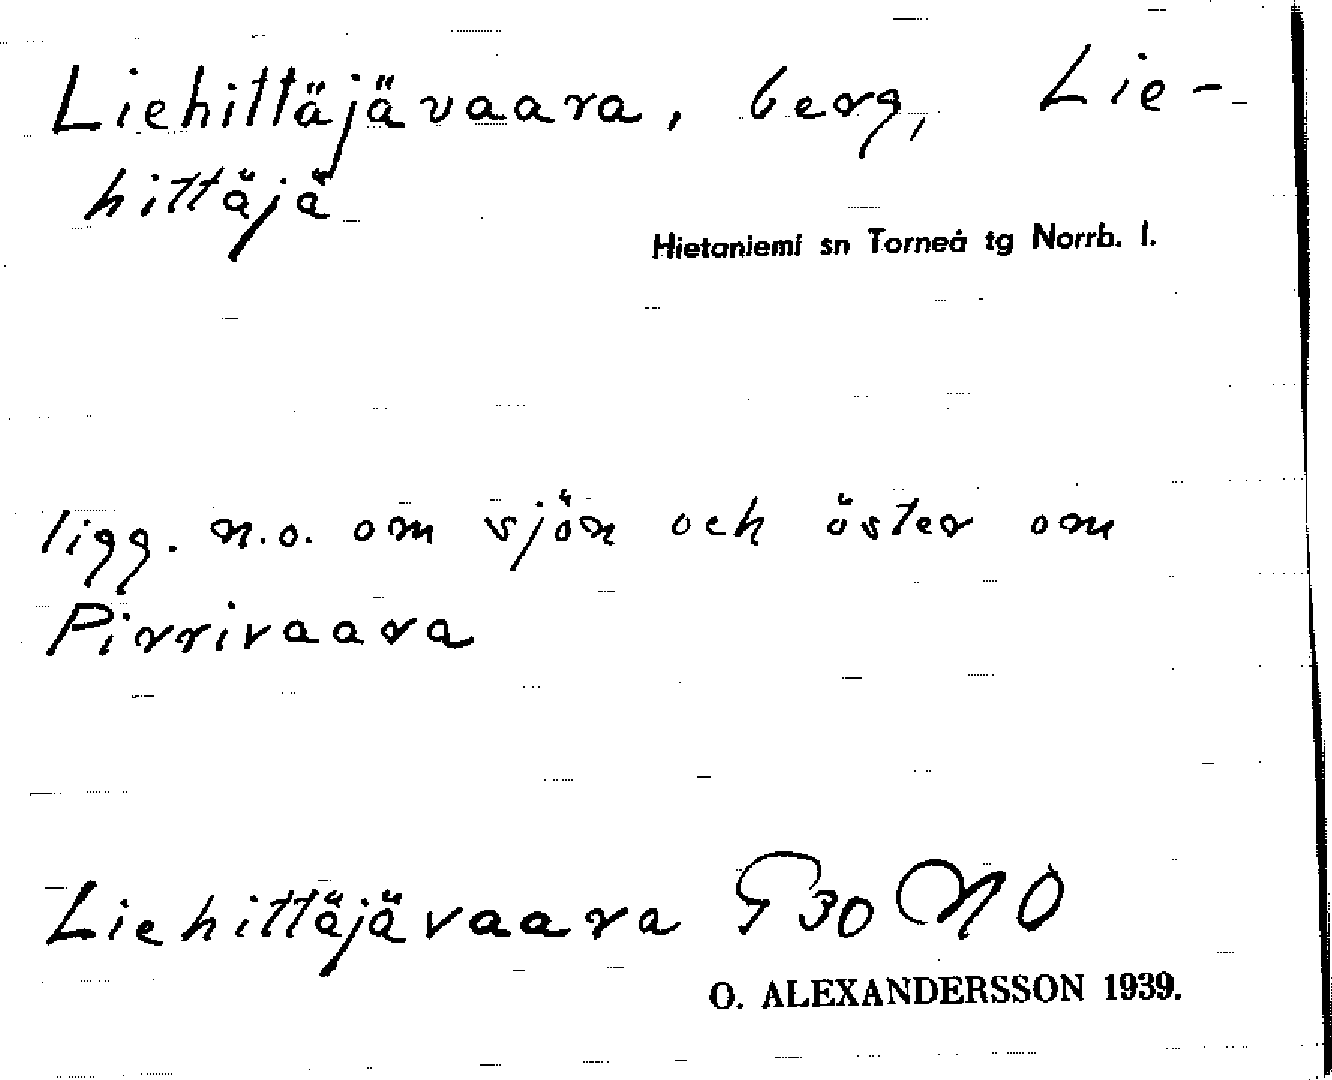 Liehittäjävaara, berg, Lie-
hittäjä
Hietaniemi sn Torneå tg Norrb. l.
ligg. n.o. om sjön och öster om
Pirrivaara
Liehittäjävaara G 30 NO
O. ALEXANDERSSON 1939.